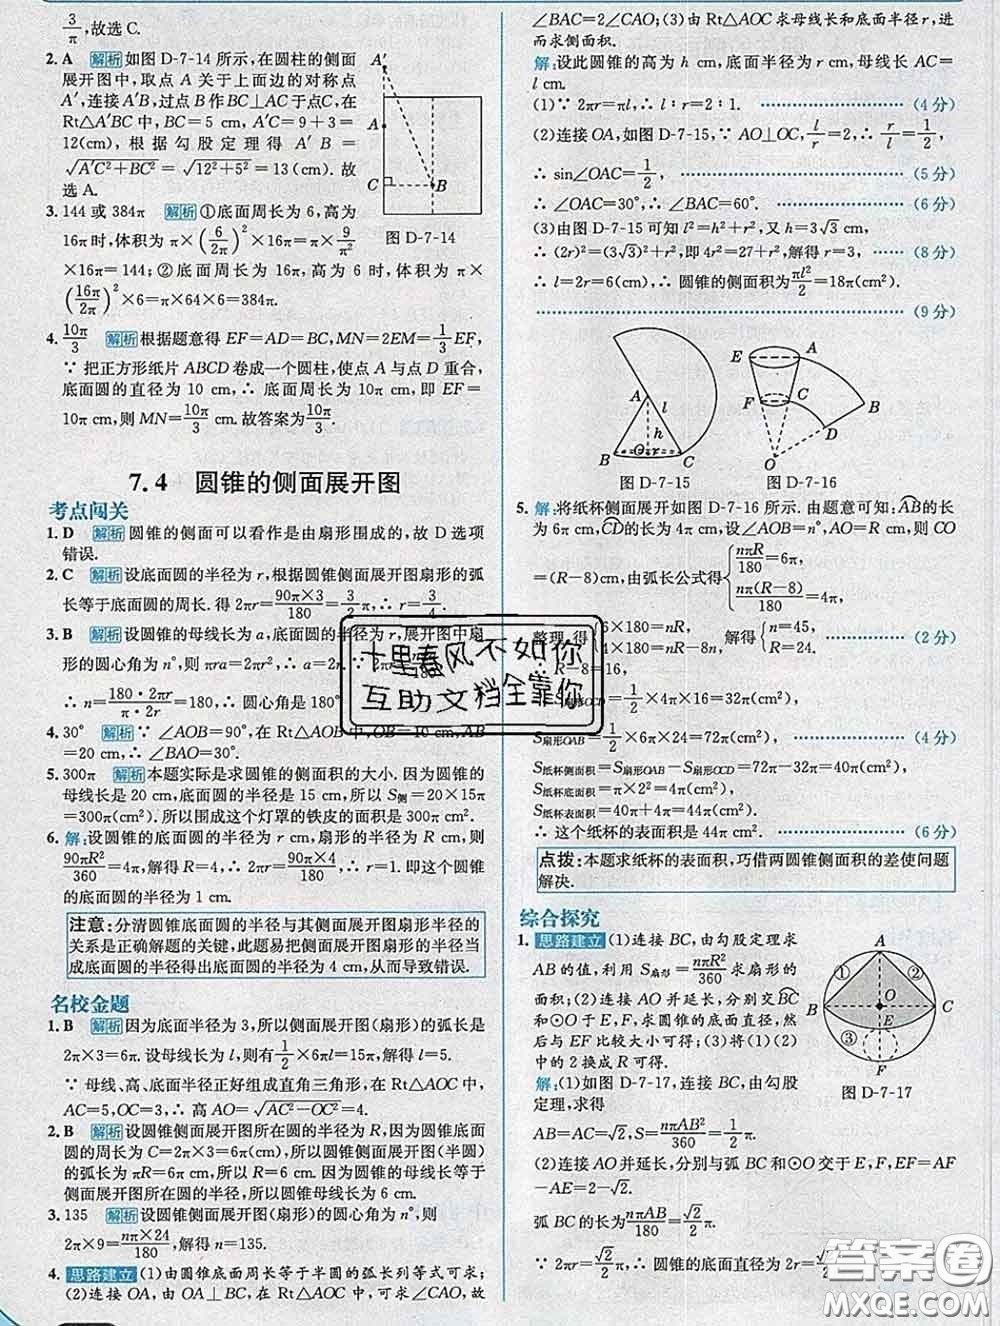 3/π,故选C.
2. A 解析 如图 D-7-14 所示,在圆柱的侧面
展开图中,取点 A 关于上面边的对称点
A′,连接 A′B,过点 B 作 BC⊥AC 于点C,在
Rt△A′BC 中,BC=5 cm,A′C=9+3=
12(cm),根据勾股定理得 A′B=
√(A′C²+BC²)=√(12²+5²)=13(cm).故
选 A.
A′
A
C
B
图 D-7-14
3. 144 或 384π 解析 ①底面周长为 6,高为
16π时,体积为 π×(6/2π)²×16π=π×9/π²
×16π=144;②底面周长为 16π,高为 6 时,体积为 π×
(16π/2π)²×6=π×64×6=384π.
4. 10π/3 解析 根据题意得 EF=AD=BC,MN=2EM=1/3 EF,
∵ 把正方形纸片 ABCD 卷成一个圆柱,使点 A 与点 D 重合,
底面圆的直径为 10 cm,∴ 底面周长为 10π cm,即 EF=
10π cm,则 MN=10π/3 cm.故答案为10π/3.
7.4 圆锥的侧面展开图
考点闯关
1. D 解析 圆锥的侧面可以看作是由扇形围成的,故 D 选项
错误.
2. C 解析 设底面圆的半径为 r,根据圆锥侧面展开图扇形的弧
长等于底面圆的周长.得 2πr=90π×3/180=3/2 π,∴ r=3/4.
3. B 解析 设圆锥的母线长为 a,底面圆的半径为 r,展开图中扇
形的圆心角为 n°,则 πra=2πr²,∴ a=2r.
∴ n=180·2πr/π·2r=180,则圆心角为 180°.
4. 30° 解析 ∵ ∠AOB=90°,在 Rt△AOB 中,OB=10 cm,AB
=20 cm,∴ ∠BAO=30°.
5. 300π 解析 本题实际是求圆锥的侧面积的大小.因为圆锥的
母线长是 20 cm,底面半径是 15 cm,所以 S侧=20×15π
=300π(cm²).所以围成这个灯罩的铁皮的面积是 300π cm².
6. 解:设圆锥的底面圆的半径为 r cm,扇形的半径为 R cm,则
90πR²/360=4π,解得 R=4,∴ 2πr=90π×4/180,∴ r=1.即这个圆锥
的底面圆的半径为 1 cm.
注意:分清圆锥底面圆的半径与其侧面展开图扇形半径的
关系是正确解题的关键,此题易把侧面展开图的半径当
成底面圆的半径得出底面圆的半径为 4 cm,从而导致错误.
名校金题
1. B 解析 因为底面半径为 3,所以侧面展开图(扇形)的弧长是
2π×3=6π.设母线长为 l,则有1/2×6πl=15π,解得 l=5.
∵ 母线、高、底面半径正好组成直角三角形,在 Rt△AOC 中,
AC=5,OC=3,∴ 高 AO=√(AC²-OC²)=4.
2. B 解析 设圆锥侧面展开图所在圆的半径为 R,因为圆锥底面
圆的周长为 C=2π×3=6π(cm),所以圆锥侧面展开图(半圆)
的弧长为 πR=6π cm,所以 R=6 cm.因为圆锥的母线长等于
侧面展开图所在圆的半径,所以圆锥的母线长为 6 cm.
3. 135 解析 设圆锥侧面展开图(扇形)的圆心角为 n°,则
2π×9=nπ×24/180,解得 n=135.
4. 思路建立 (1)由圆锥底面周长等于半圆的弧长列等式可求;
(2)连接 OA,由 OA⊥BC,在 Rt△AOC 中,可求∠CAO,故
∠BAC=2∠CAO;(3)由 Rt△AOC 求母线长和底面半径 r,进
而求侧面积.
解:设此圆锥的高为 h cm,底面半径为 r cm,母线长 AC=
l cm.
(1)∵ 2πr=πl,∴ l∶r=2∶1. (4 分)
(2)连接 OA,如图 D-7-15,∵ AO⊥OC,l/r=2,∴ r/l=1/2,
∴ sin∠OAC=1/2, (5 分)
∴ ∠OAC=30°,∴ ∠BAC=60°. (6 分)
(3)由图 D-7-15 可知 l²=h²+r²,又 h=3√3 cm,
∴ (2r)²=(3√3)²+r²,即 4r²=27+r²,解得 r=3, (8 分)
∴ l=2r=6(cm),∴ 圆锥的侧面积为πl²/2=18π(cm²).
(9 分)
A
l
h
B
O
r
C
图 D-7-15
E
A
F
C
B
D
O
图 D-7-16
5. 解:将纸杯侧面展开如图 D-7-16 所示.由题意可知:AB的长
为 6π cm,CD的长为 4π cm,设∠AOB=n°,AO=R cm,则 CO
=(R-8)cm,由弧长公式得{nπR/180=6π, nπ(R-8)/180=4π,
整理,得{6×180=nR, 解得{n=45, R=24. (2 分)
∴ R-8=16,
S扇形OCD=1/2×4π×16=32π(cm²),
S扇形OAB=1/2×6π×24=72π(cm²), (4 分)
S纸杯侧面积=S扇形OAB-S扇形OCD=72π-32π=40π(cm²),
S纸杯底面积=π×2²=4π(cm²),
S纸杯表面积=40π+4π=44π(cm²).
∴ 这个纸杯的表面积是 44π cm². (6 分)
点拨:本题求纸杯的表面积,巧借两圆锥侧面积的差使问题
解决.
综合探究
1. 思路建立 (1)连接 BC,由勾股定理求
AB 的值,利用 S扇形=nπR²/360求扇形的
面积;(2)连接 AO并延长,分别交BC
和⊙O于 E,F,求圆锥的底面直径,然
后与 EF 比较大小可得;(3)将(1)(2)
中的 2 换成 R 可得.
解:(1)如图 D-7-17,连接 BC,由勾股
定理,求得
AB=AC=√2,S=nπAB²/360=1/2 π.
A
①
②
O
B
C
E
③
F
图 D-7-17
(2)连接 AO 并延长,分别与弧 BC 和⊙O 交于 E,F,EF=AF
-AE=2-√2,
弧 BC 的长为nπAB/180=√2/2 π.
∵ 2πr=√2/2 π,∴ 圆锥的底面直径为 2r=√2/2.
十里春风不如你
互助文档全靠你
答案圈
MXQE.COM